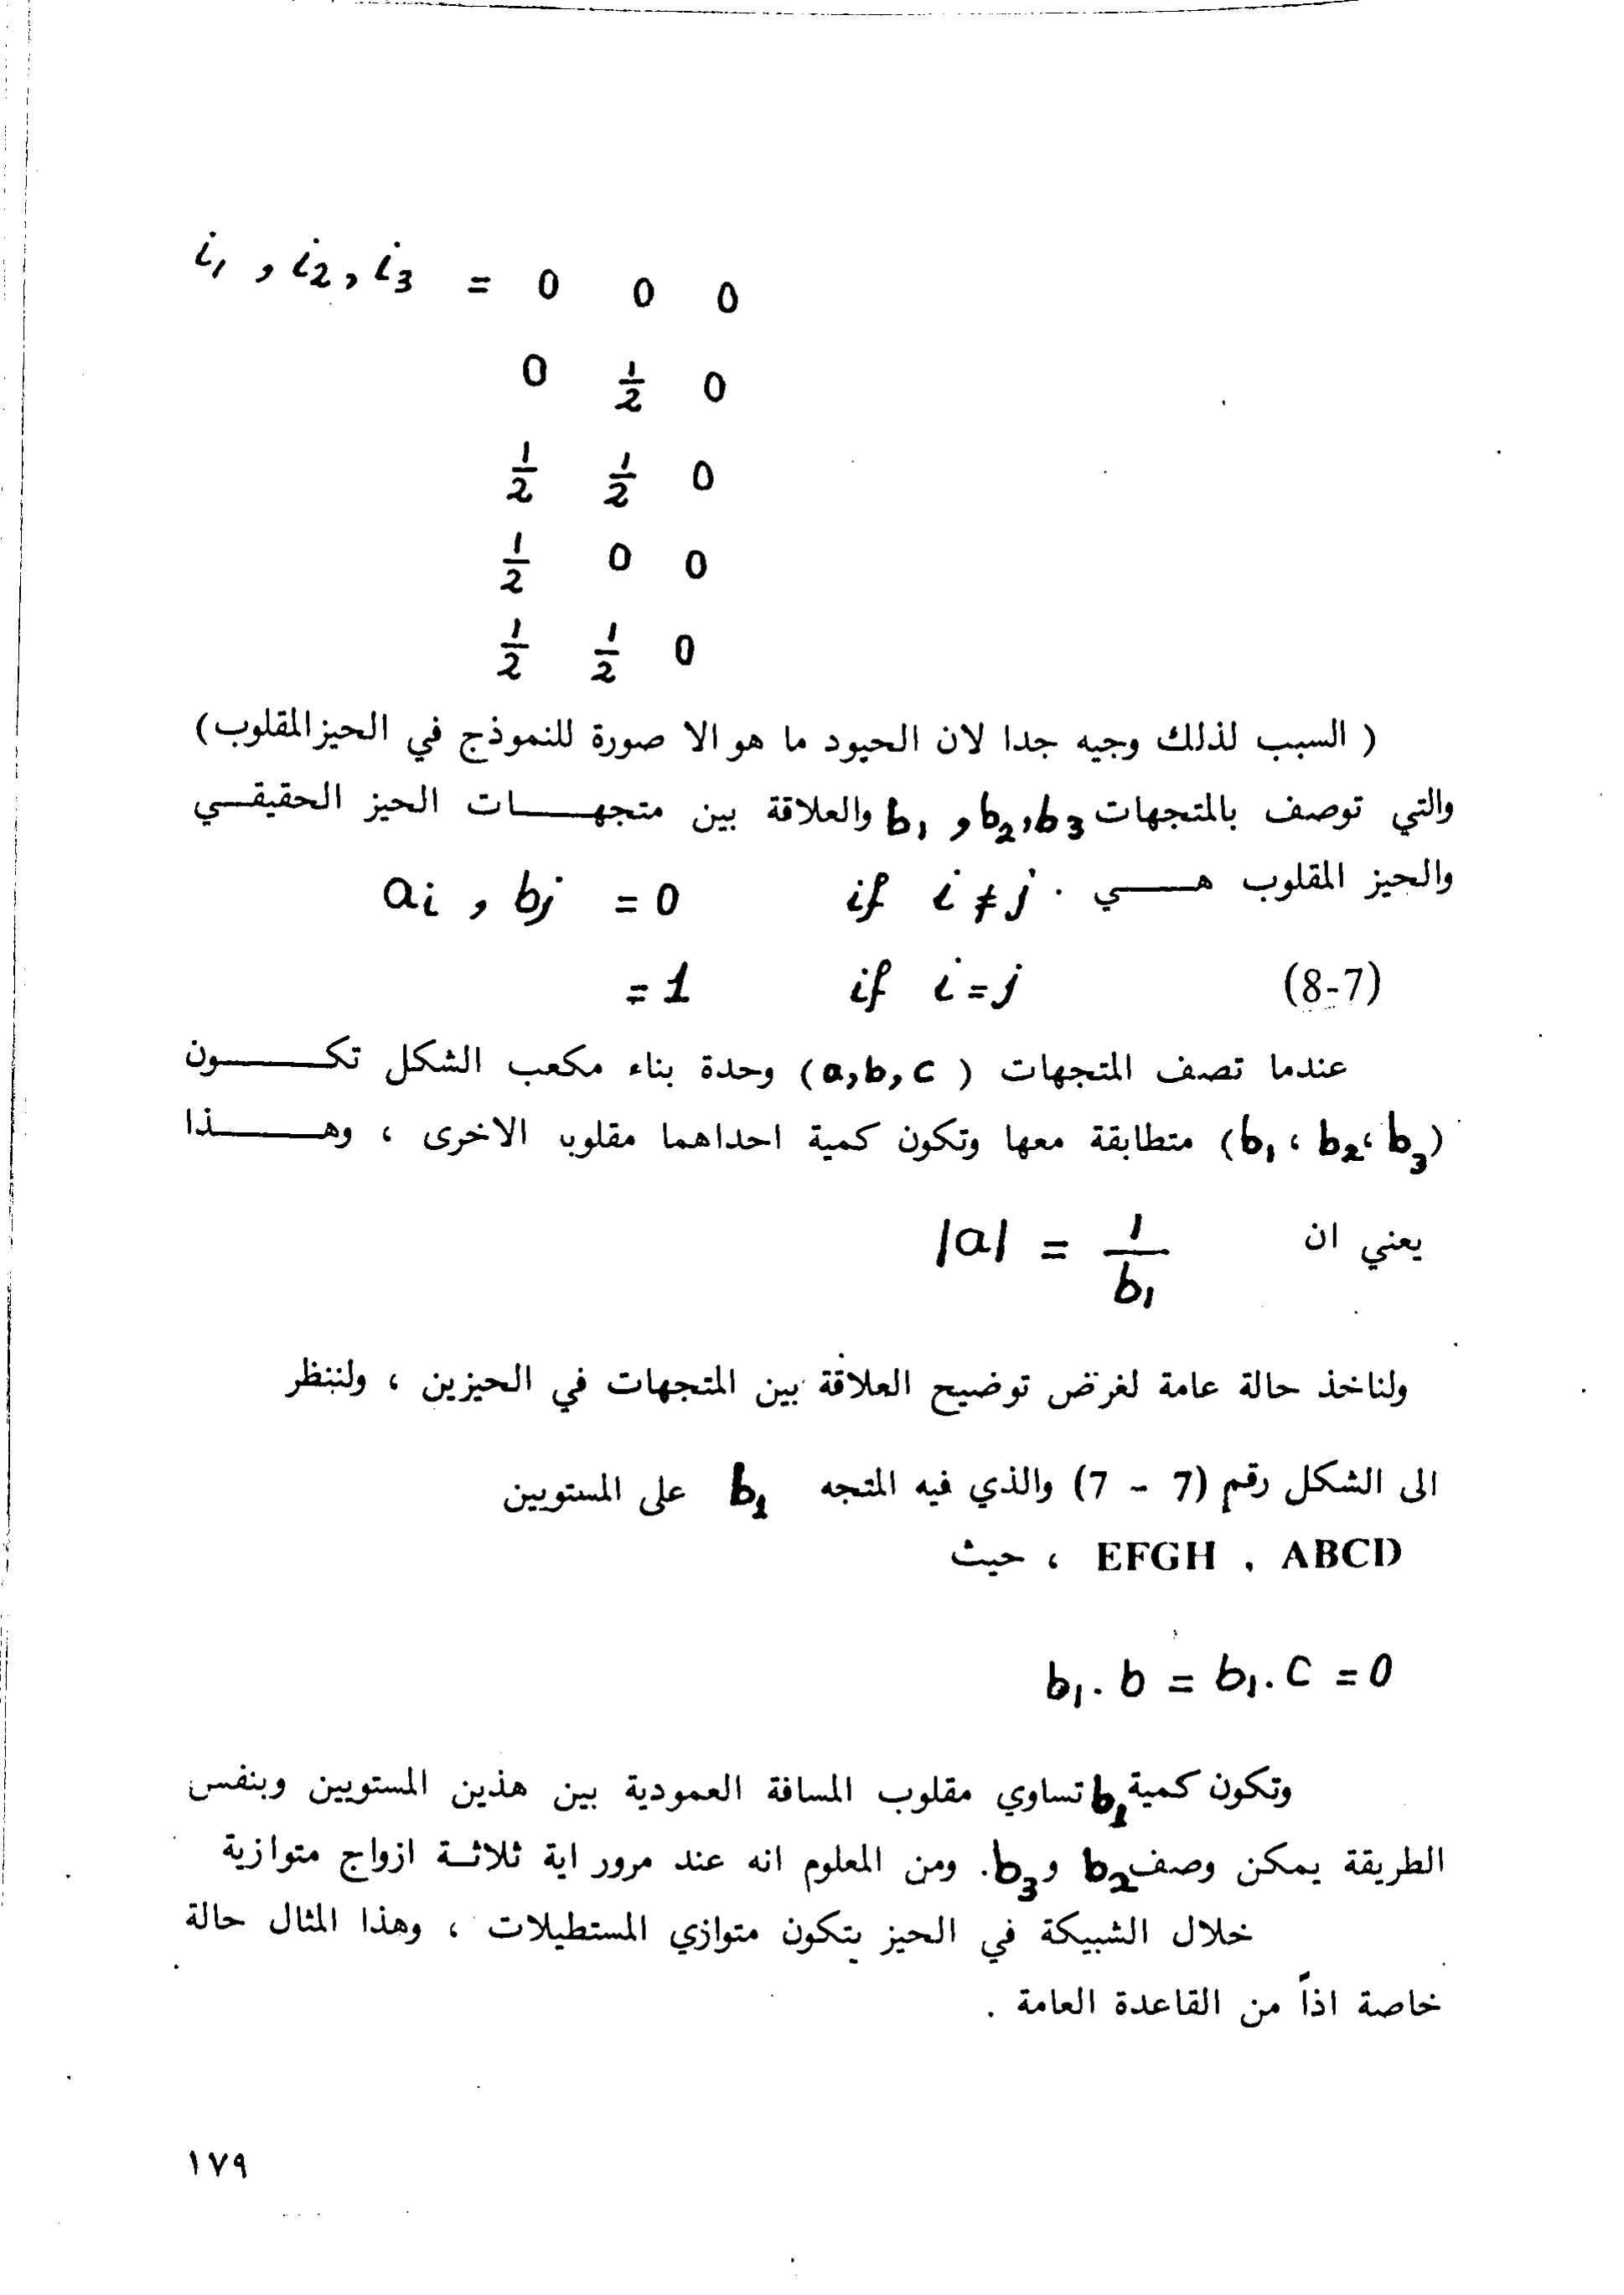 i₁ , i₂ , i₃ = 0 0 0
0 1/2 0
1/2 1/2 0
1/2 0 0
1/2 1/2 0
( السبب لذلك وجيه جدا لان الحيود ما هو الا صورة للنموذج في الحيز المقلوب)
والتي توصف بالمتجهات b₁ , b₂, b₃ والعلاقة بين متجهـــات الحيز الحقيقـي
والحيز المقلوب هـــي . ai , bj = 0 if i ≠ j
= 1 if i = j (8-7)
عندما تصف المتجهات ( a,b,c) وحدة بناء مكعب الشكل تكـــون
(b₁ ، b₂ ، b₃) متطابقة معها وتكون كمية احداهما مقلوب الاخرى ، وهـــذا
يعني ان |a| = 1/b₁
ولناخذ حالة عامة لغرض توضيح العلاقة بين المتجهات في الحيزين ، ولننظر
الى الشكل رقم (7 - 7) والذي فيه المتجه b₁ على المستويين
EFGH , ABCD ، حيث
b₁. b = b₁. c = 0
وتكون كمية b₁ تساوي مقلوب المسافة العمودية بين هذين المستويين وبنفس
الطريقة يمكن وصف b₂ و b₃. ومن المعلوم انه عند مرور اية ثلاثـة ازواج متوازية
خلال الشبيكة في الحيز يتكون متوازي المستطيلات ، وهذا المثال حالة
خاصة اذاً من القاعدة العامة .
١٧٩